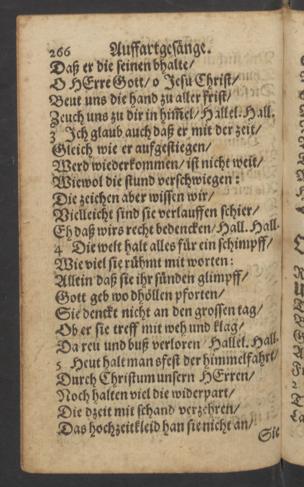 266 Auffartgesänge.
Daß er die seinen bhalte/
O HErre Gott/ o Jesu Christ/
Beut uns die hand zu aller frist/
Zeuch uns zu dir in him̃el/ Hallel. Hall.
3 Ich glaub auch daß er mit der zeit/
Gleich wie er aufgestiegen/
Werd wiederkommen/ ist nicht weit/
Wiewol die stund verschwiegen:
Die zeichen aber wissen wir/
Vielleicht sind sie verlauffen schier/
Eh daß wirs recht bedencken/ Hall. Hall.
4 Die welt halt alles für ein schimpff/
Wie viel sie rühmt mit worten:
Allein daß sie ihr sünden glimpff/
Gott geb wo dhöllen pforten/
Sie denckt nicht an den grossen tag/
Ob er sie treff mit weh und klag/
Da reu und buß verloren/ Hallel. Hall.
5 Heut halt man sfest der himmelfahrt/
Durch Christum unsern HErren/
Noch halten viel die widerpart/
Die dzeit mit schand verzehren/
Das hochzeitkleid han sie nicht an/
Sie